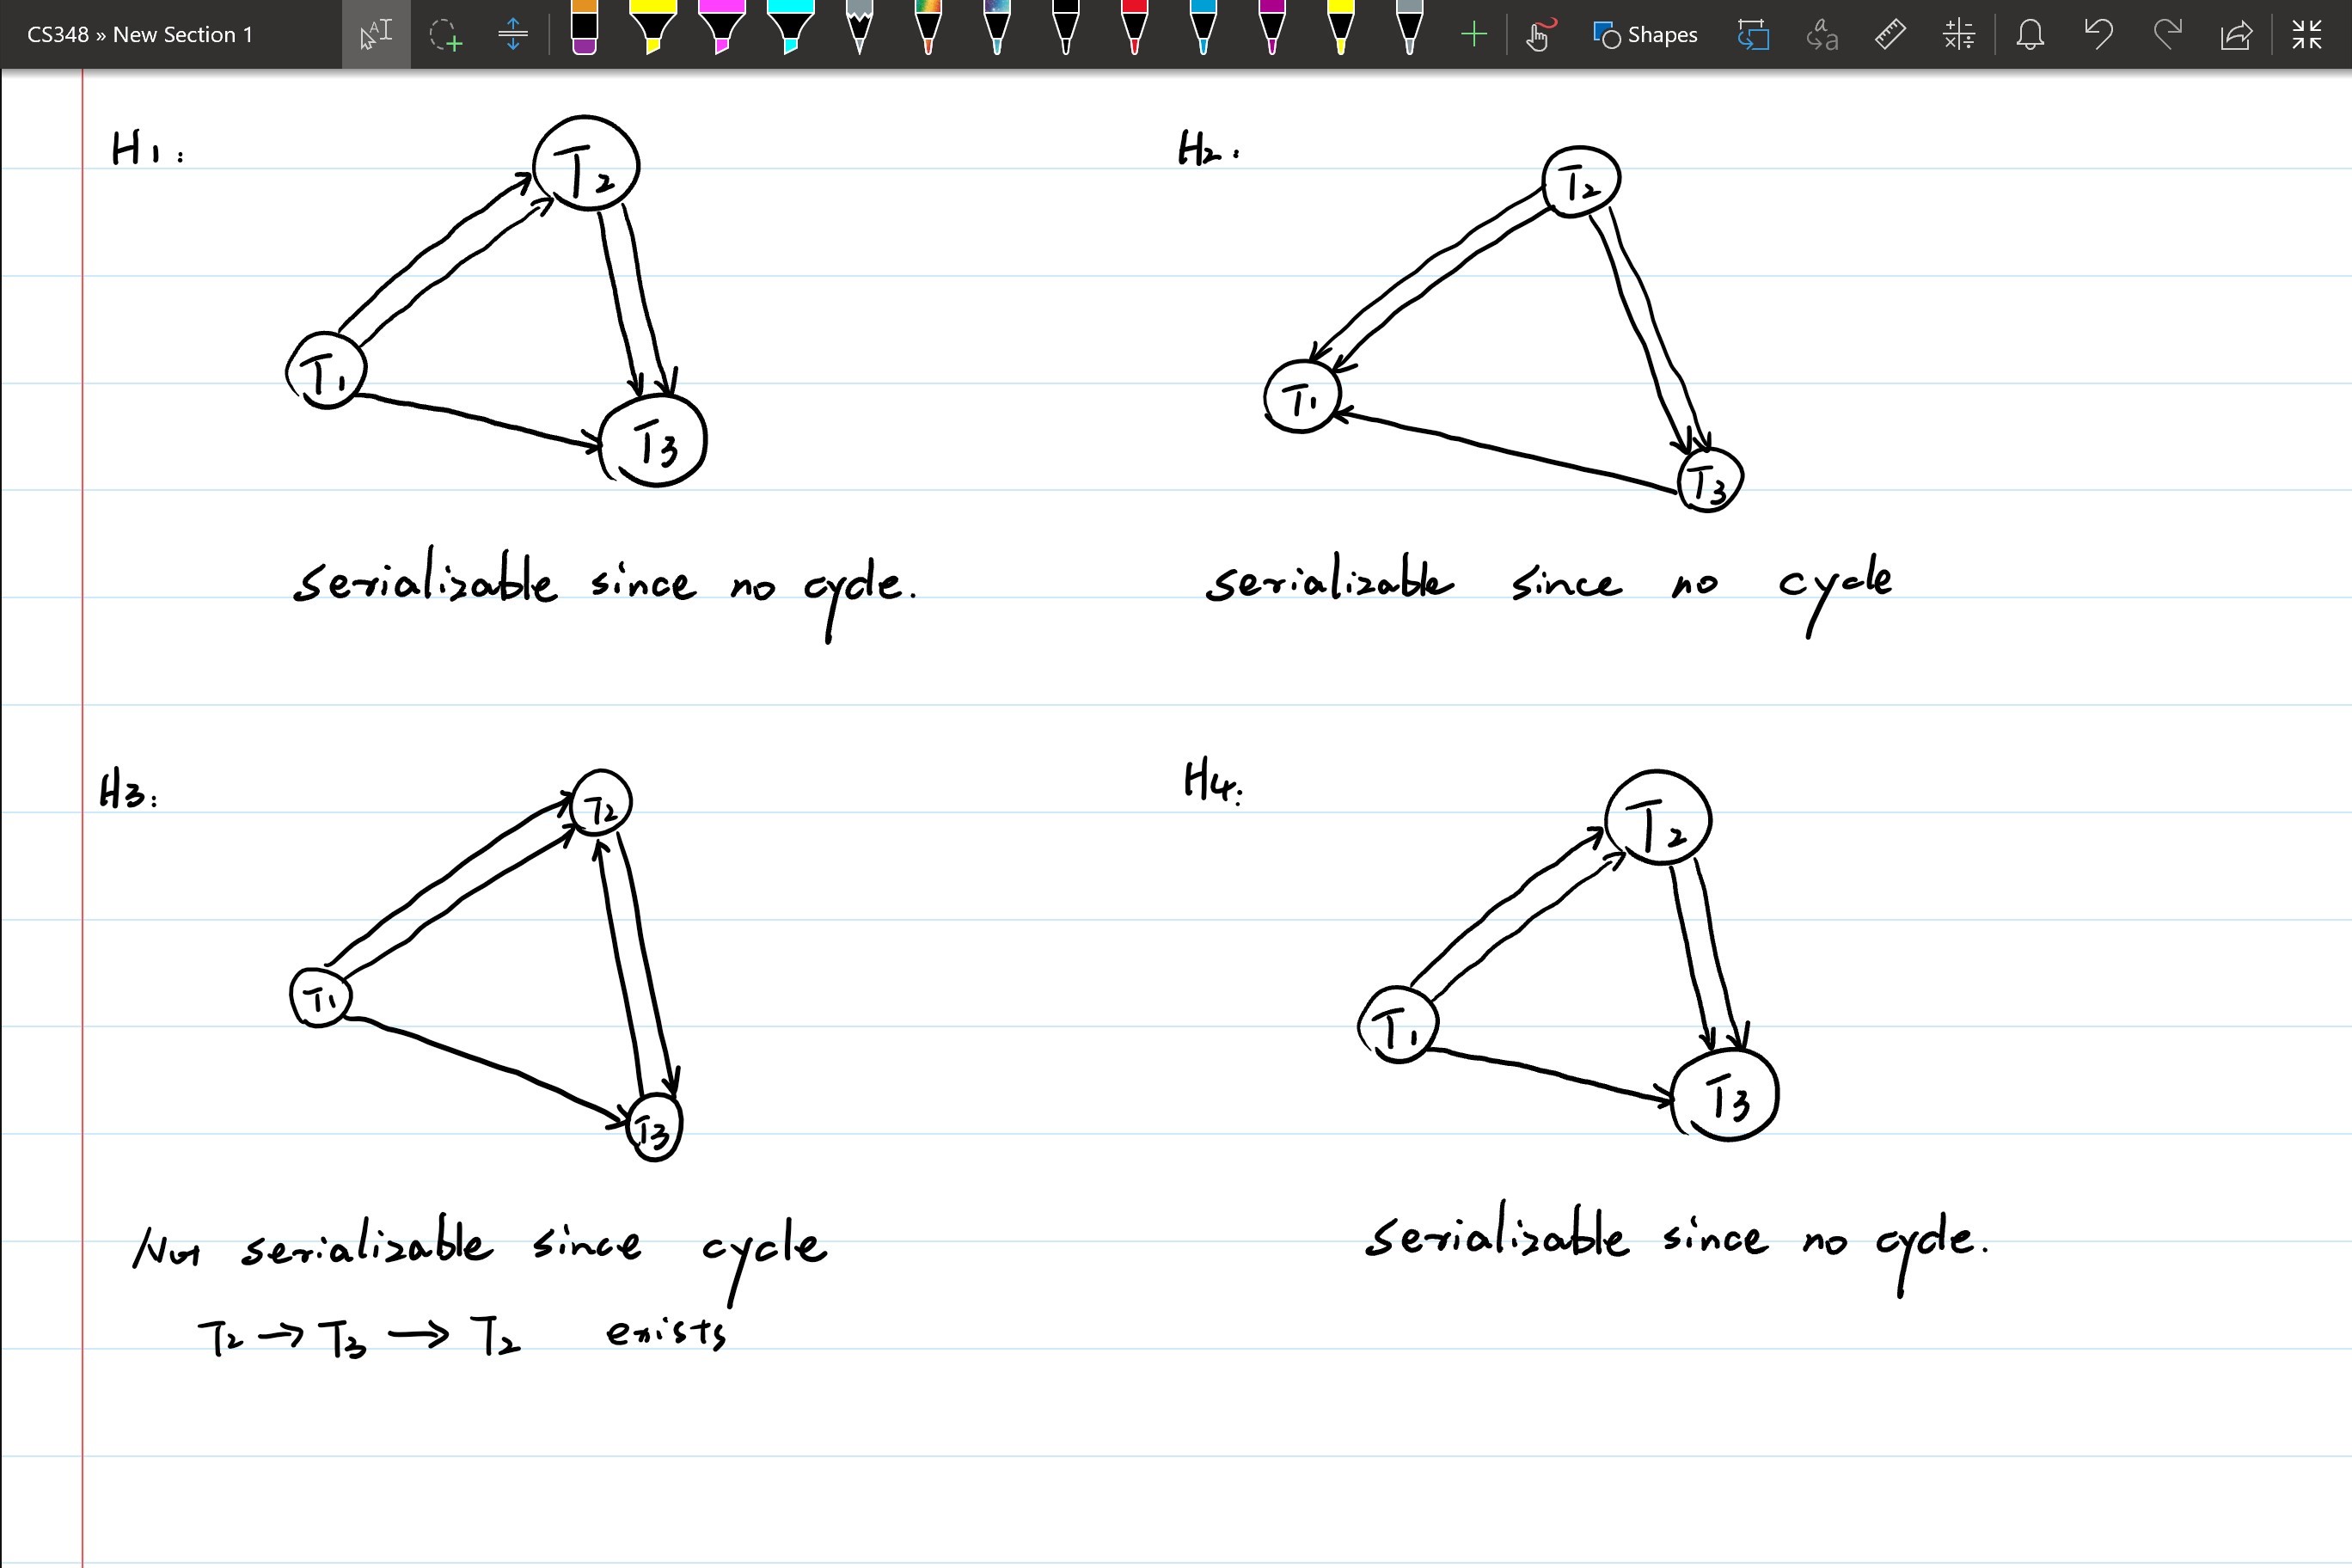 CS348 » New Section 1
Shapes
H1:
T2
T1
T3
serializable since no cycle.
H2:
T2
T1
T3
serializable since no cycle
H3:
T2
T1
T3
Not serializable since cycle
T2 → T3 → T2 exists
H4:
T2
T1
T3
serializable since no cycle.